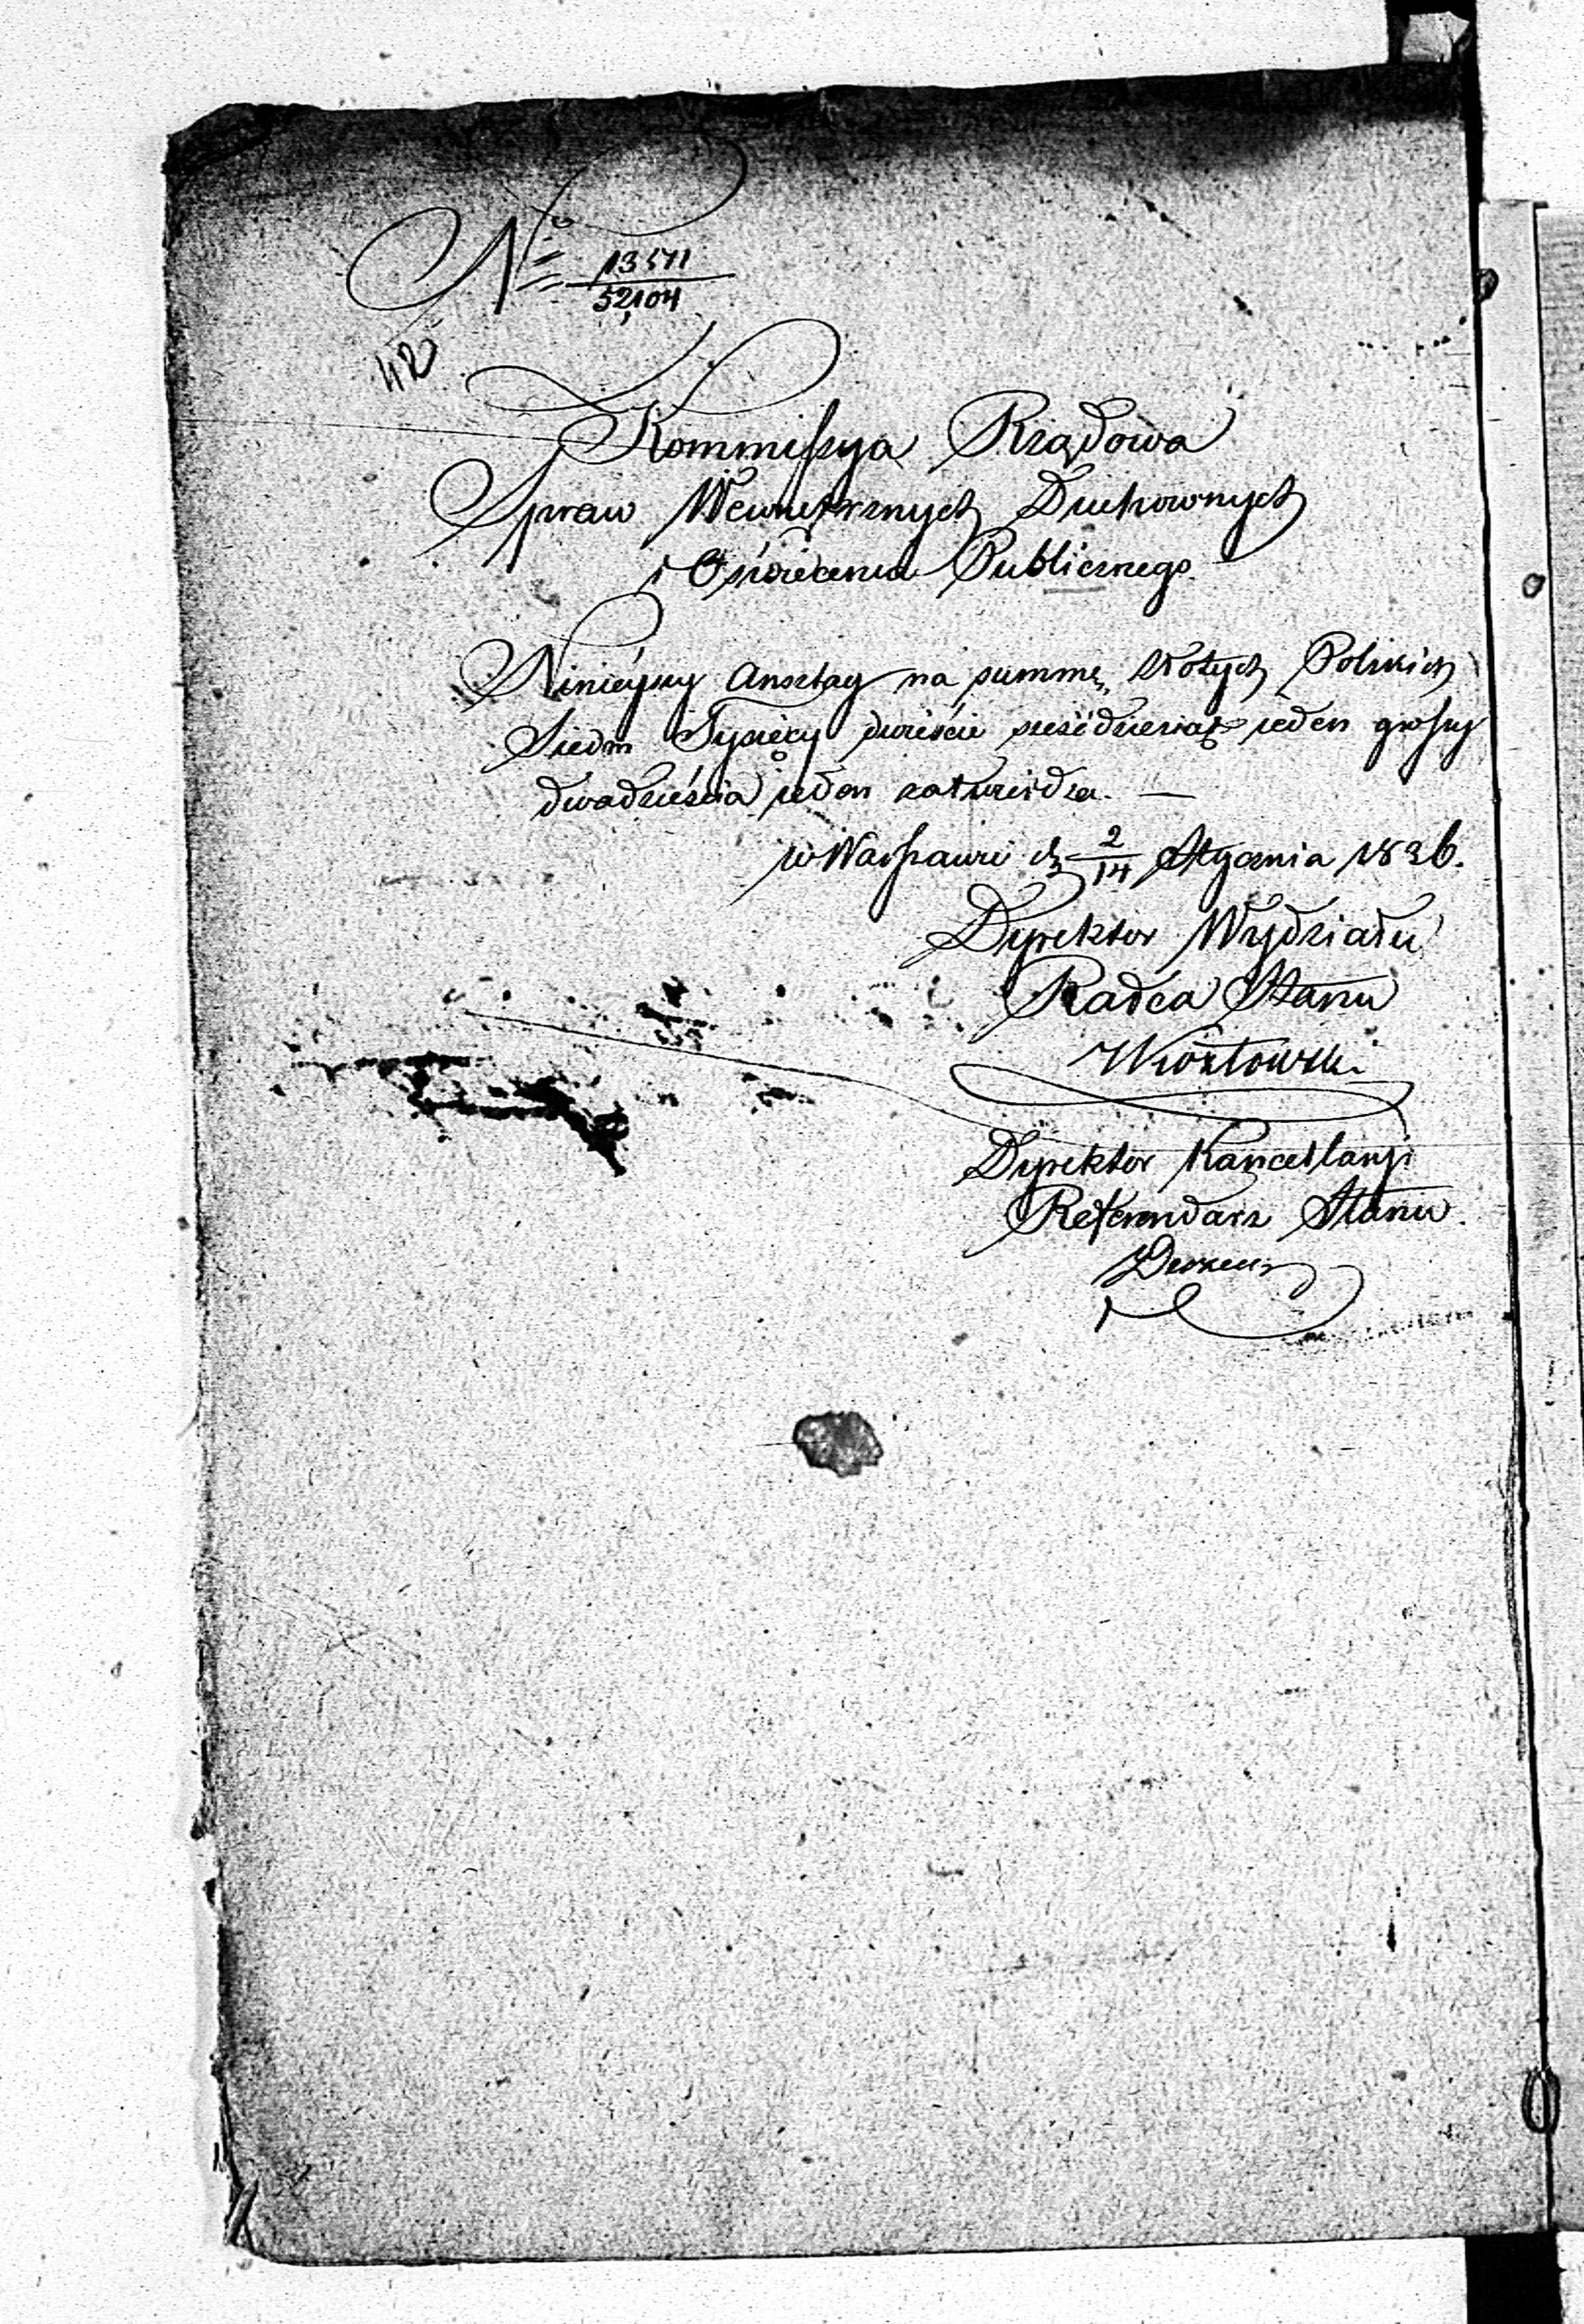 No 13571
52104
42
Kommissya Rządowa
Spraw Wewnętrznych Duchownych
i Oświecenia Publicznego.
Ninieyszy Anszlag na summę Złotych Polskich
Siedm Tysięcy dwieście sześćdziesiąt ieden groszy
dwadzieścia ieden zatwierdza. —
w Warszawie d. 2/14 Stycznia 1836.
Dyrektor Wydziału
Radca Stanu
Dyrektor Kancellaryi
Referendarz Stanu.